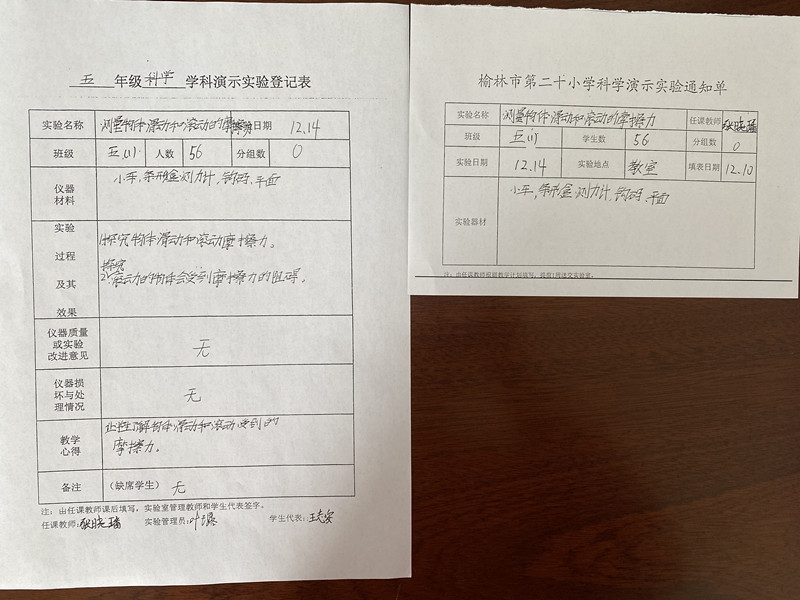 五 年级 科学 学科演示实验登记表
实验名称 测量物体滑动和滚动的摩擦力 实验日期 12.14
班级 五(1) 人数 56 分组数 0
仪器
材料
小车,条形盒,测力计,钩码,平面
实验
过程
及其
效果
1.探究物体滑动和滚动摩擦力。
探究
2.滚动的物体会受到摩擦力的阻碍。
仪器质量
或实验
改进意见
无
仪器损
坏与处
理情况
无
教学
心得
让学生了解物体滑动和滚动受到的
摩擦力。
备注 (缺席学生) 无
注:由任课教师课后填写,实验室管理教师和学生代表签字。
任课教师: 实验管理员:叶 学生代表:王
榆林市第二十小学科学演示实验通知单
实验名称 测量物体滑动和滚动的摩擦力 任课教师
班级 五(1) 学生数 56 分组数 0
实验日期 12.14 实验地点 教室 填表日期 12.10
实验器材 小车,条形盒,测力计,钩码,平面
注:由任课教师根据教学计划填写,提前1周送交实验室。